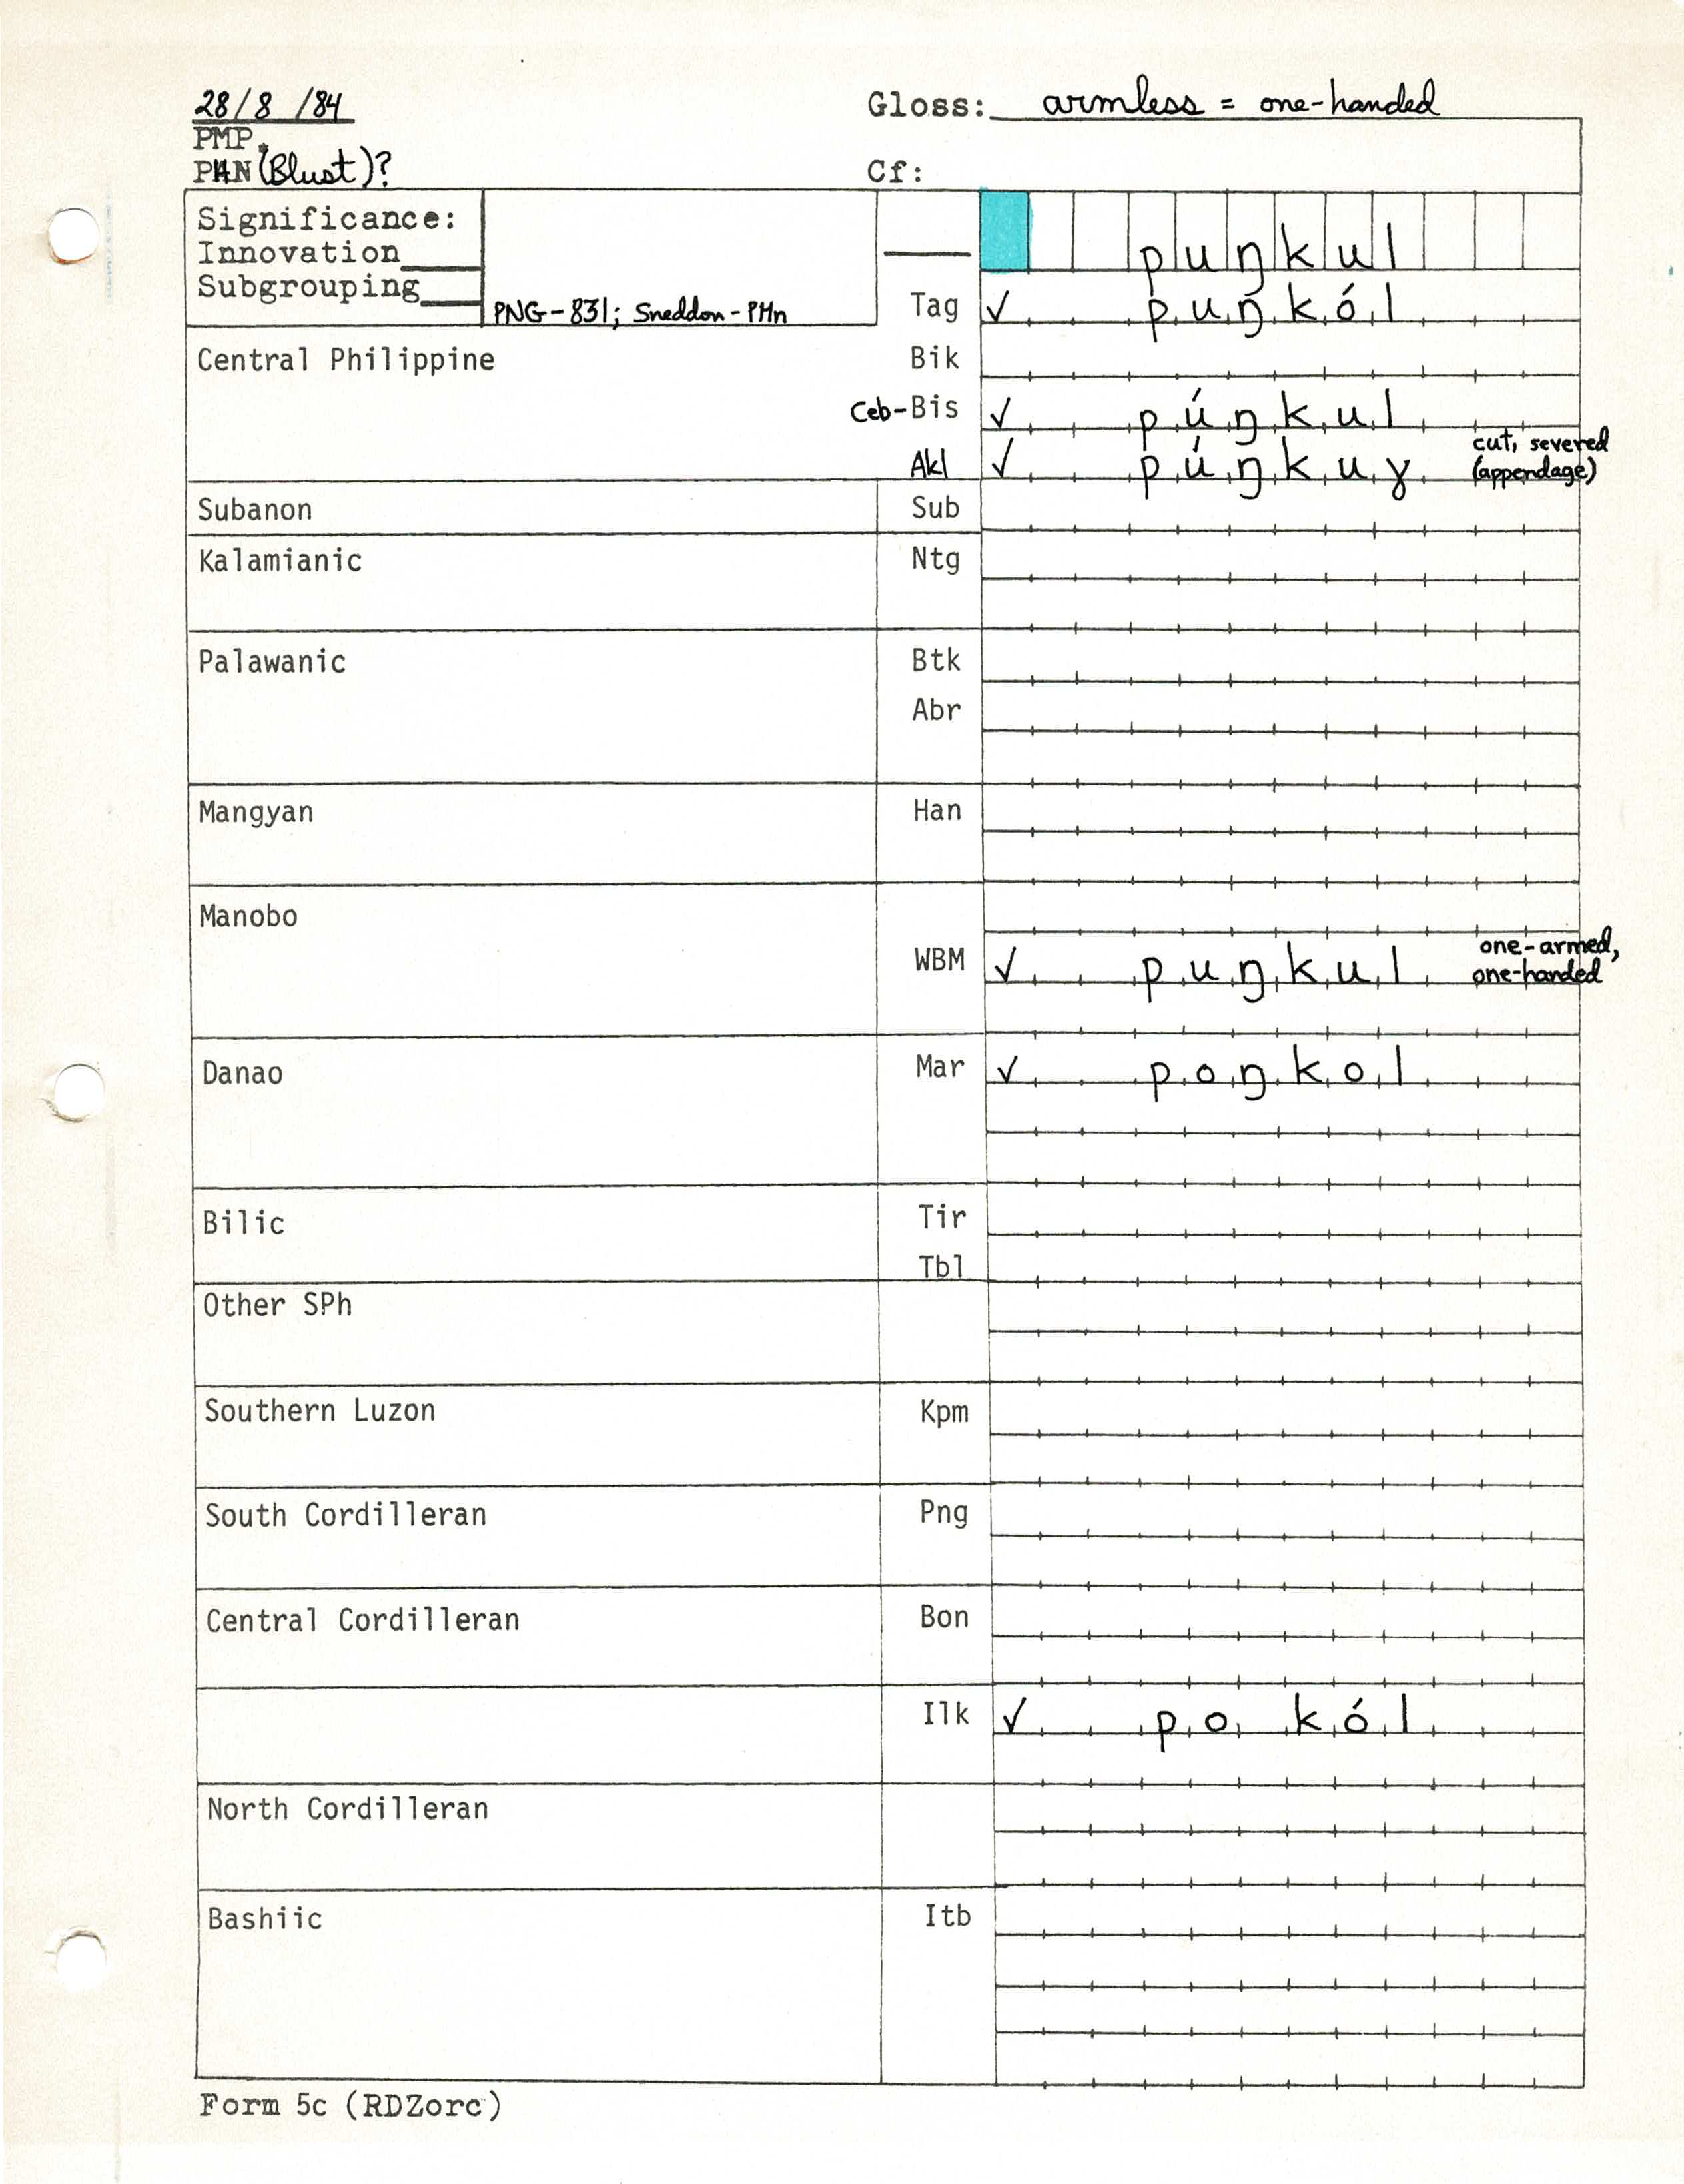 28/8/84
Gloss: armless = one-handed
PMP.
PAN (Blust)?
Cf:
Significance:
Innovation
Subgrouping
PNG-831; Sneddon-PMn
puŋkul
Tag ✓ puŋkól
Central Philippine
Bik
Ceb-Bis ✓ púŋkul
Akl ✓ púŋkuɣ cut, severed (appendage)
Subanon Sub
Kalamianic Ntg
Palawanic Btk
Abr
Mangyan Han
Manobo
WBM ✓ puŋkul one-armed, one-handed
Danao Mar ✓ poŋkol
Bilic Tir
Tbl
Other SPh
Southern Luzon Kpm
South Cordilleran Png
Central Cordilleran Bon
Ilk ✓ po kól
North Cordilleran
Bashiic Itb
Form 5c (RDZorc)